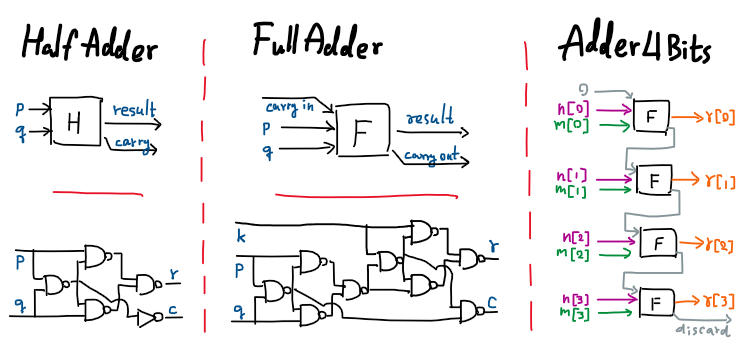 Half Adder
p
q
H
result
carry
p
q
r
c
Full Adder
carry in
p
q
F
result
carry out
k
p
q
r
c
Adder4Bits
0
n[0]
m[0]
F
r[0]
n[1]
m[1]
F
r[1]
n[2]
m[2]
F
r[2]
n[3]
m[3]
F
r[3]
discard